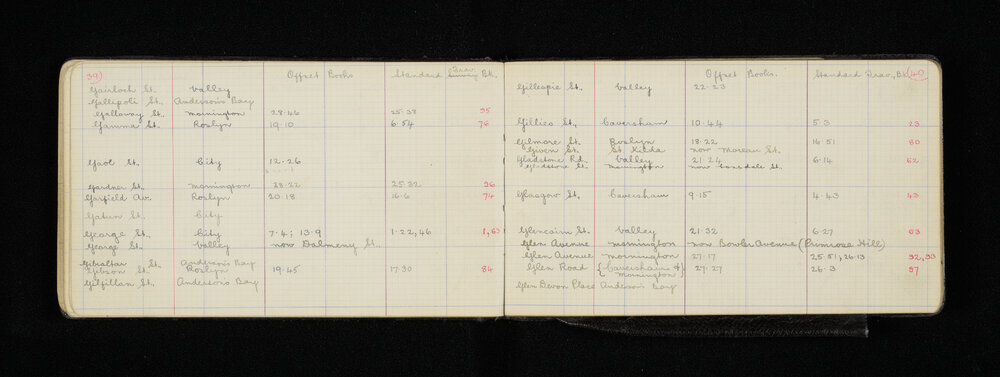 39) Offset Books Standard Trav. Bk.
Gairloch St. Valley
Gallipoli St. Anderson's Bay
Galloway St. Mornington 28·46 25·38 95
Gamma St. Roslyn 19·10 6·54 76
Gaol St. City 12·26
Gardner St. Mornington 28·22 25·32 96
Garfield Av. Roslyn 20·18 16·6 74
Gatun St. City
George St. City 7·4; 13·9 1·22, 46 1, 60
George St. Valley now Dalmeny St.
Gibraltar St. Anderson's Bay
Gibson St. Roslyn 19·45 17·30 84
Gilfillan St. Anderson's Bay
Offset Books. Standard Trav. Bk. 40
Gillespie St. Valley 22·23
Gillies St. Caversham 10·44 5·3 23
Gilmore St. Roslyn 18·22 16·51 80
Given St. St Kilda now Moreau St.
Gladstone Rd. Valley 21·24 6·14 62
Gladstone St. Mornington now Lonsdale St.
Glasgow St. Caversham 9·15 4·43 43
Glencairn St. Valley 21·32 6·27 63
Glen Avenue Mornington now Bowler Avenue (Primrose Hill)
Glen Avenue Mornington 27·17 25·51, 26·13 92, 93
Glen Road {Caversham & Mornington} 27·27 26·3 97
Glen Devon Place Anderson's Bay